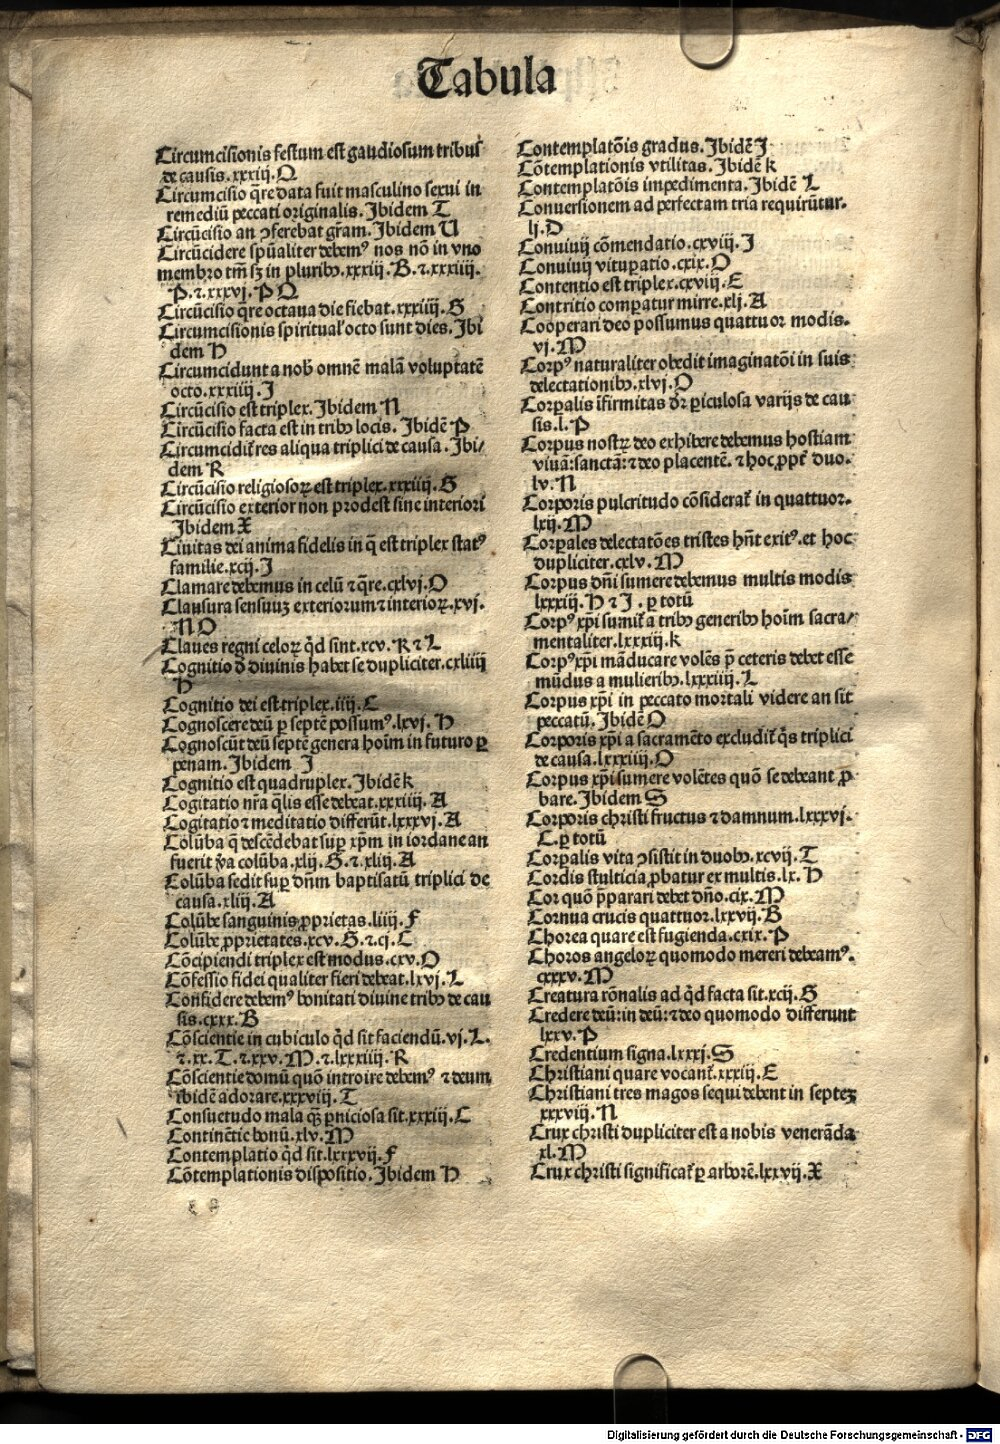 Tabula
Circumcisionis festum est gaudiosum tribus
de causis.xxxiij.Q
Circumcisio q̄re data fuit masculino sexui in
remediū peccati originalis. Ibidem T
Circūcisio an ꝯferebat gr̄am. Ibidem U
Circūcidere spūaliter debemꝰ nos nō in vno
membro tm̄ sꝫ in pluribꝰ.xxxiij.B.⁊.xxxiiij.
P.⁊.xxxvj.P Q
Circūcisio q̄re octaua die fiebat.xxxiiij.G
Circumcisionis spiritual' octo sunt dies. Ibi
dem H
Circumcidunt a nob̄ omnē malā voluptatē
octo.xxxiiij.I
Circūcisio est triplex. Ibidem N
Circūcisio facta est in tribꝰ locis. Ibidē P
Circumcidit̄ res aliqua triplici de causa. Ibi/
dem R
Circūcisio religiosoꝝ est triplex.xxxiiij.S
Circūcisio exterior non prodest sine interiori
Ibidem X
Ciuitas dei anima fidelis in q̄ est triplex statꝰ
familie.xcij.I
Clamare debemus in celū ⁊ q̄re.cxlvj.O
Clausura sensuuꝫ exteriorum ⁊ interioꝝ.xvj.
N O
Claues regni celoꝝ qd̄ sint.xcv.K ⁊ L
Cognitio d̄ diuinis habet se dupliciter.cxliiij
H
Cognitio dei est triplex.iiij.C
Cognoscere deū ꝑ septē possumꝰ.lxvj.H
Cognoscūt deū septē genera hoīm in futuro ꝑ
penam. Ibidem I
Cognitio est quadruplex. Ibidē k
Cogitatio nr̄a q̄lis esse debeat.xxxiiij.A
Cogitatio ⁊ meditatio differūt.lxxxvj.A
Colūba q̄ descēdebat suꝑ xp̄m in iordane an
fuerit v̄a colūba.xlij.G.⁊.xliij.A
Colūba sedit suꝑ dn̄m baptisatū triplici de
causa.xliij.A
Colūbe sanguinis ꝓprietas.liiij.F
Colūbe ꝓprietates.xcv.G.⁊.cj.C
Cōcipiendi triplex est modus.cxv.O
Cōfessio fidei qualiter fieri debeat.lxvj.L
Confidere debemꝰ bonitati diuine tribꝰ de cau
sis.cxxx.B
Cōscientie in cubiculo qd̄ sit faciendū.vj.L.
⁊.xx.T.⁊.xxv.M.⁊.lxxxiiij.R
Cōscientie domū quō introire debemꝰ ⁊ deum
ibidē adorare.xxxviij.T
Consuetudo mala q̄ꝫ ꝑniciosa sit.xxxiij.C
Continētie bonū.xlv.M
Contemplatio qd̄ sit.lxxxvij.F
Cōtemplationis dispositio. Ibidem H
Contemplatōis gradus. Ibidē I
Cōtemplationis vtilitas. Ibidē k
Contemplatōis impedimenta. Ibidē L
Conuersionem ad perfectam tria requirūtur.
lj.D
Conuiuij cōmendatio.cxviij.I
Conuiuij vituꝑatio.cxix.O
Contentio est triplex.cxviij.E
Contritio comꝑatur mirre.xlj.A
Cooperari deo possumus quattuor modis.
vj.M
Corpꝰ naturaliter obedit imaginatōi in suis
delectationibꝰ.xlvj.O
Corꝑalis īfirmitas dr̄ ꝑiculosa varijs de cau
sis.l.P
Corpus nostrꝫ deo exhibere debemus hostiam
viuā:sanctā:⁊ deo placentē. ⁊ hoc ꝓpt̄ duo.
lv.N
Corporis pulcritudo cōsiderat̄ in quattuor.
lxij.M
Corꝑales delectatōes tristes hn̄t exitꝰ.et hoc
dupliciter.cxlv.M
Corpus dn̄i sumere debemus multis modis
lxxxiij.H ⁊ I . ꝑ totū
Corpꝰ xp̄i sumit̄ a tribꝰ generibꝰ hoīm sacra/
mentaliter.lxxxiij.k
Corpꝰ xp̄i māducare volēs p̄ ceteris debet esse
mūdus a mulieribꝰ.lxxxiiij.L
Corpus xp̄i in peccato mortali videre an sit
peccatū. Ibidē O
Corporis xp̄i a sacramēto excludit̄ q̄s triplici
de causa.lxxxiiij.O
Corpus xp̄i sumere volētes quō se debeant ꝓ
bare. Ibidem S
Corporis christi fructus ⁊ damnum.lxxxvj.
C.ꝑ totū
Corꝑalis vita ꝯsistit in duobꝰ.xcvij.T
Cordis stulticia ꝓbatur ex multis.lx.H
Cor quō p̄parari debet dn̄o.cix.M
Cornua crucis quattuor.lxxvij.B
Chorea quare est fugienda.cxix.P
Choros angeloꝝ quomodo mereri debeamꝰ.
cxxxv.M
Creatura rōnalis ad qd̄ facta sit.xcij.G
Credere deū:in deū:⁊ deo quomodo differunt
lxxv.P
Credentium signa.lxxxj.S
Christiani quare vocant̄.xxxiij.E
Christiani tres magos sequi debent in septeꝫ
xxxviij.N
Crux christi dupliciter est a nobis venerāda
xl.M
Crux christi significat̄ ꝑ arborē.lxxvij.X
Digitalisierung gefördert durch die Deutsche Forschungsgemeinschaft - DFG